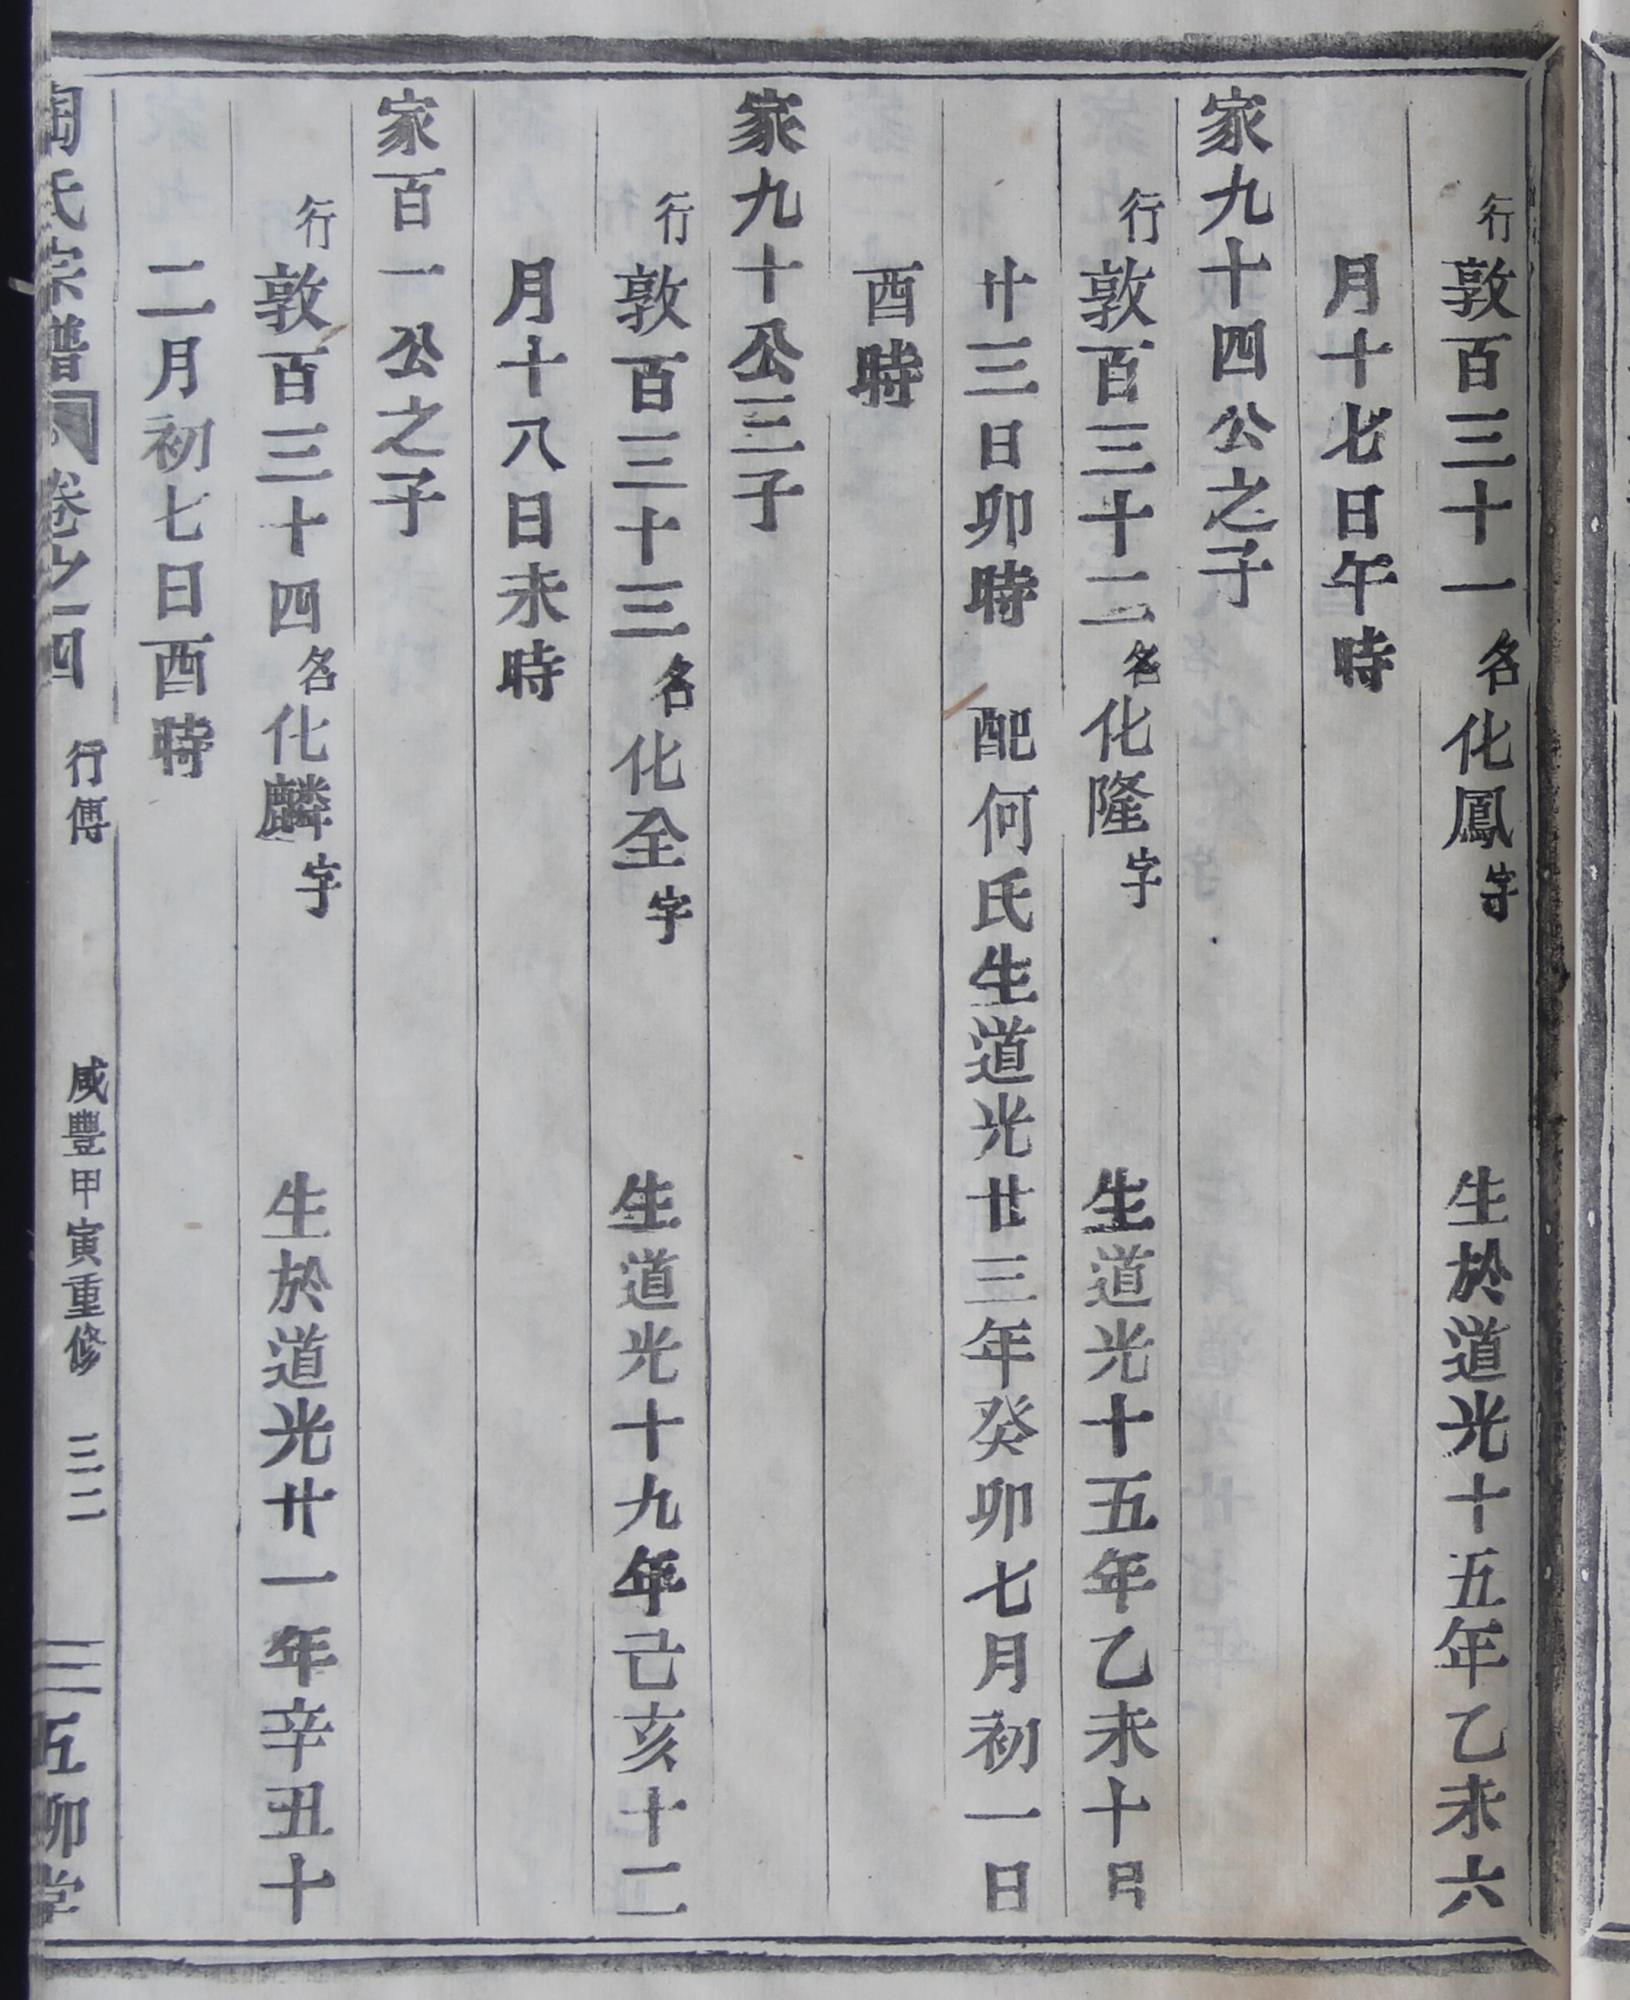 行敦百三十一名化鳳字 生於道光十五年乙未六
月十七日午時
家九十四公之子
行敦百三十二名化隆字 生道光十五年乙未十月
廿三日卯時 配何氏生道光廿三年癸卯七月初一日
酉時
家九十公三子
行敦百三十三名化全字 生道光十九年己亥十二
月十八日未時
家百一公之子
行敦百三十四名化麟字 生於道光廿一年辛丑十
二月初七日酉時
陶氏宗譜 卷之四 行傳 咸豐甲寅重修 三二 五柳堂